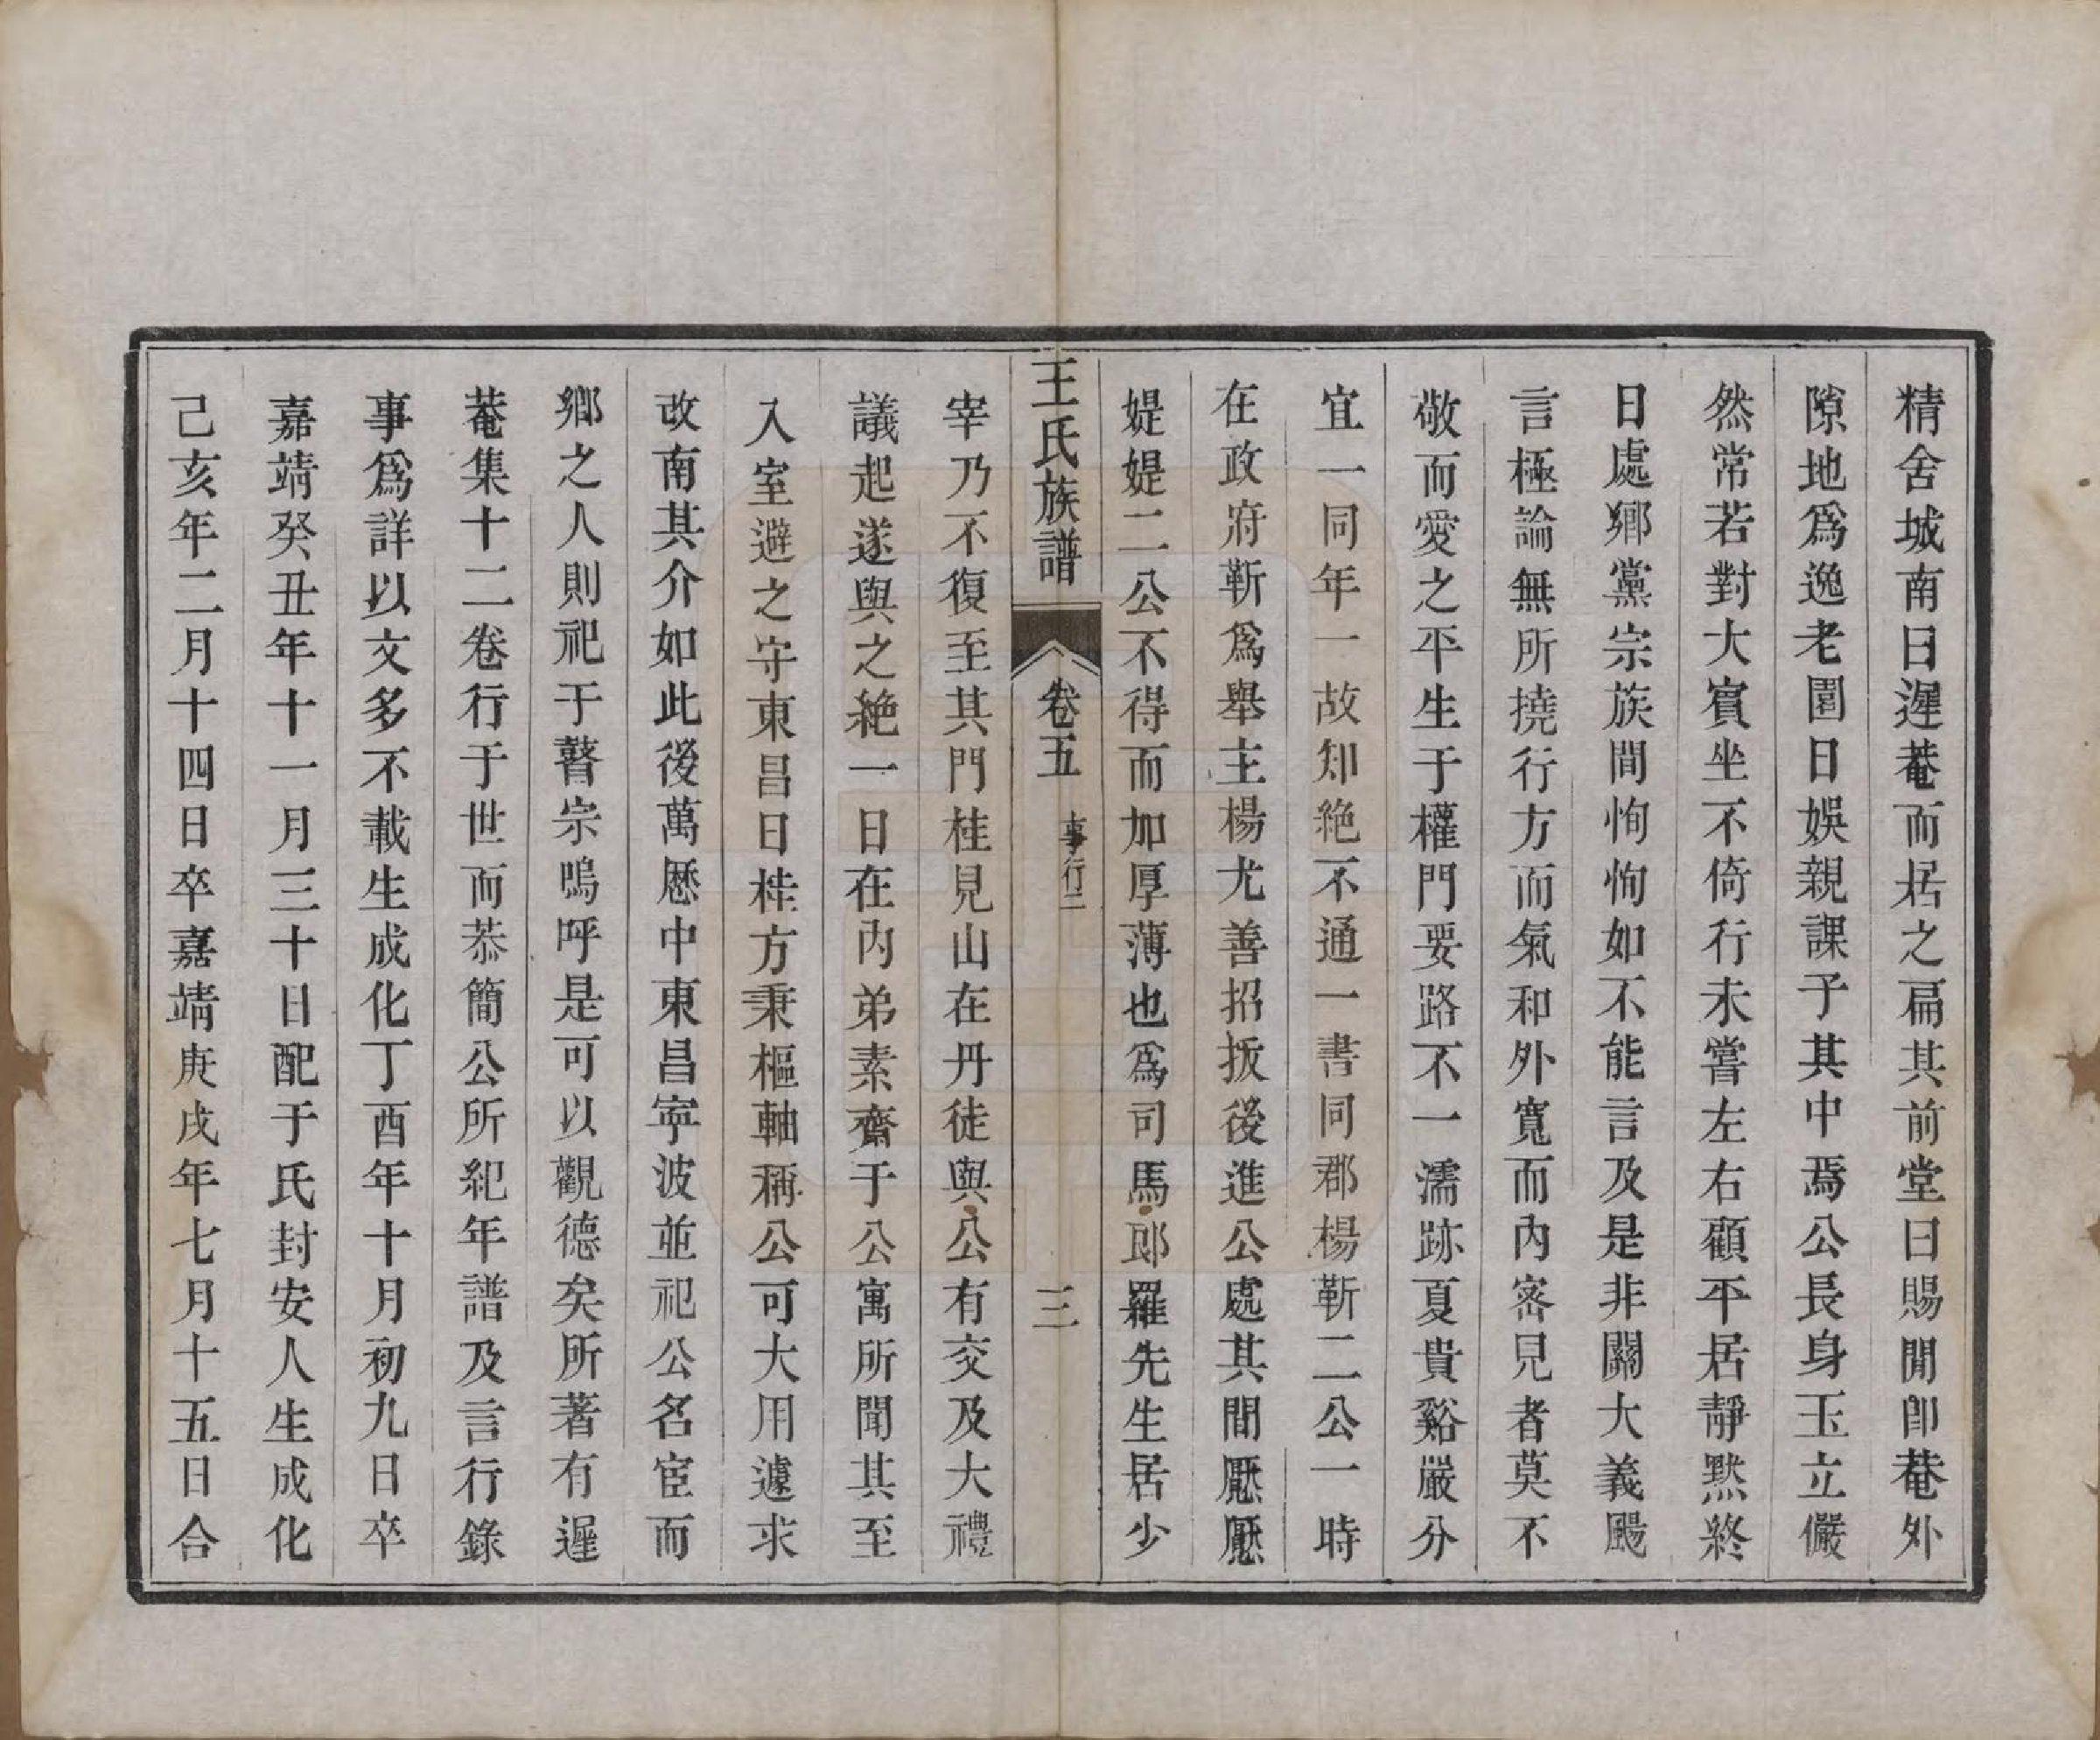 精舍城南曰遲菴而居之扁其前堂曰賜閒卽菴外
隙地爲逸老園日娛親課子其中焉公長身玉立儼
然常若對大賓坐不倚行未嘗左右顧平居靜黙終
日處鄉黨宗族間恂恂如不能言及是非關大義颺
言極論無所撓行方而氣和外寬而內密見者莫不
敬而愛之平生于權門要路不一濡跡夏貴谿嚴分
宜一同年一故知絶不通一書同郡楊靳二公一時
在政府靳爲舉主楊尤善招扳後進公處其間懕懕
媞媞二公不得而加厚薄也爲司馬郎羅先生居少
王氏族譜 卷五 事行二 三
宰乃不復至其門桂見山在丹徒與公有交及大禮
議起遂與之絶一日在內弟素齋于公寓所聞其至
入室避之守東昌日桂方秉樞軸稱公可大用遽求
改南其介如此後萬厯中東昌寧波並祀公名宦而
鄉之人則祀于瞽宗嗚呼是可以觀德矣所著有遲
菴集十二卷行于世而恭簡公所紀年譜及言行錄
事爲詳以文多不載生成化丁酉年十月初九日卒
嘉靖癸丑年十一月三十日配于氏封安人生成化
己亥年二月十四日卒嘉靖庚戌年七月十五日合